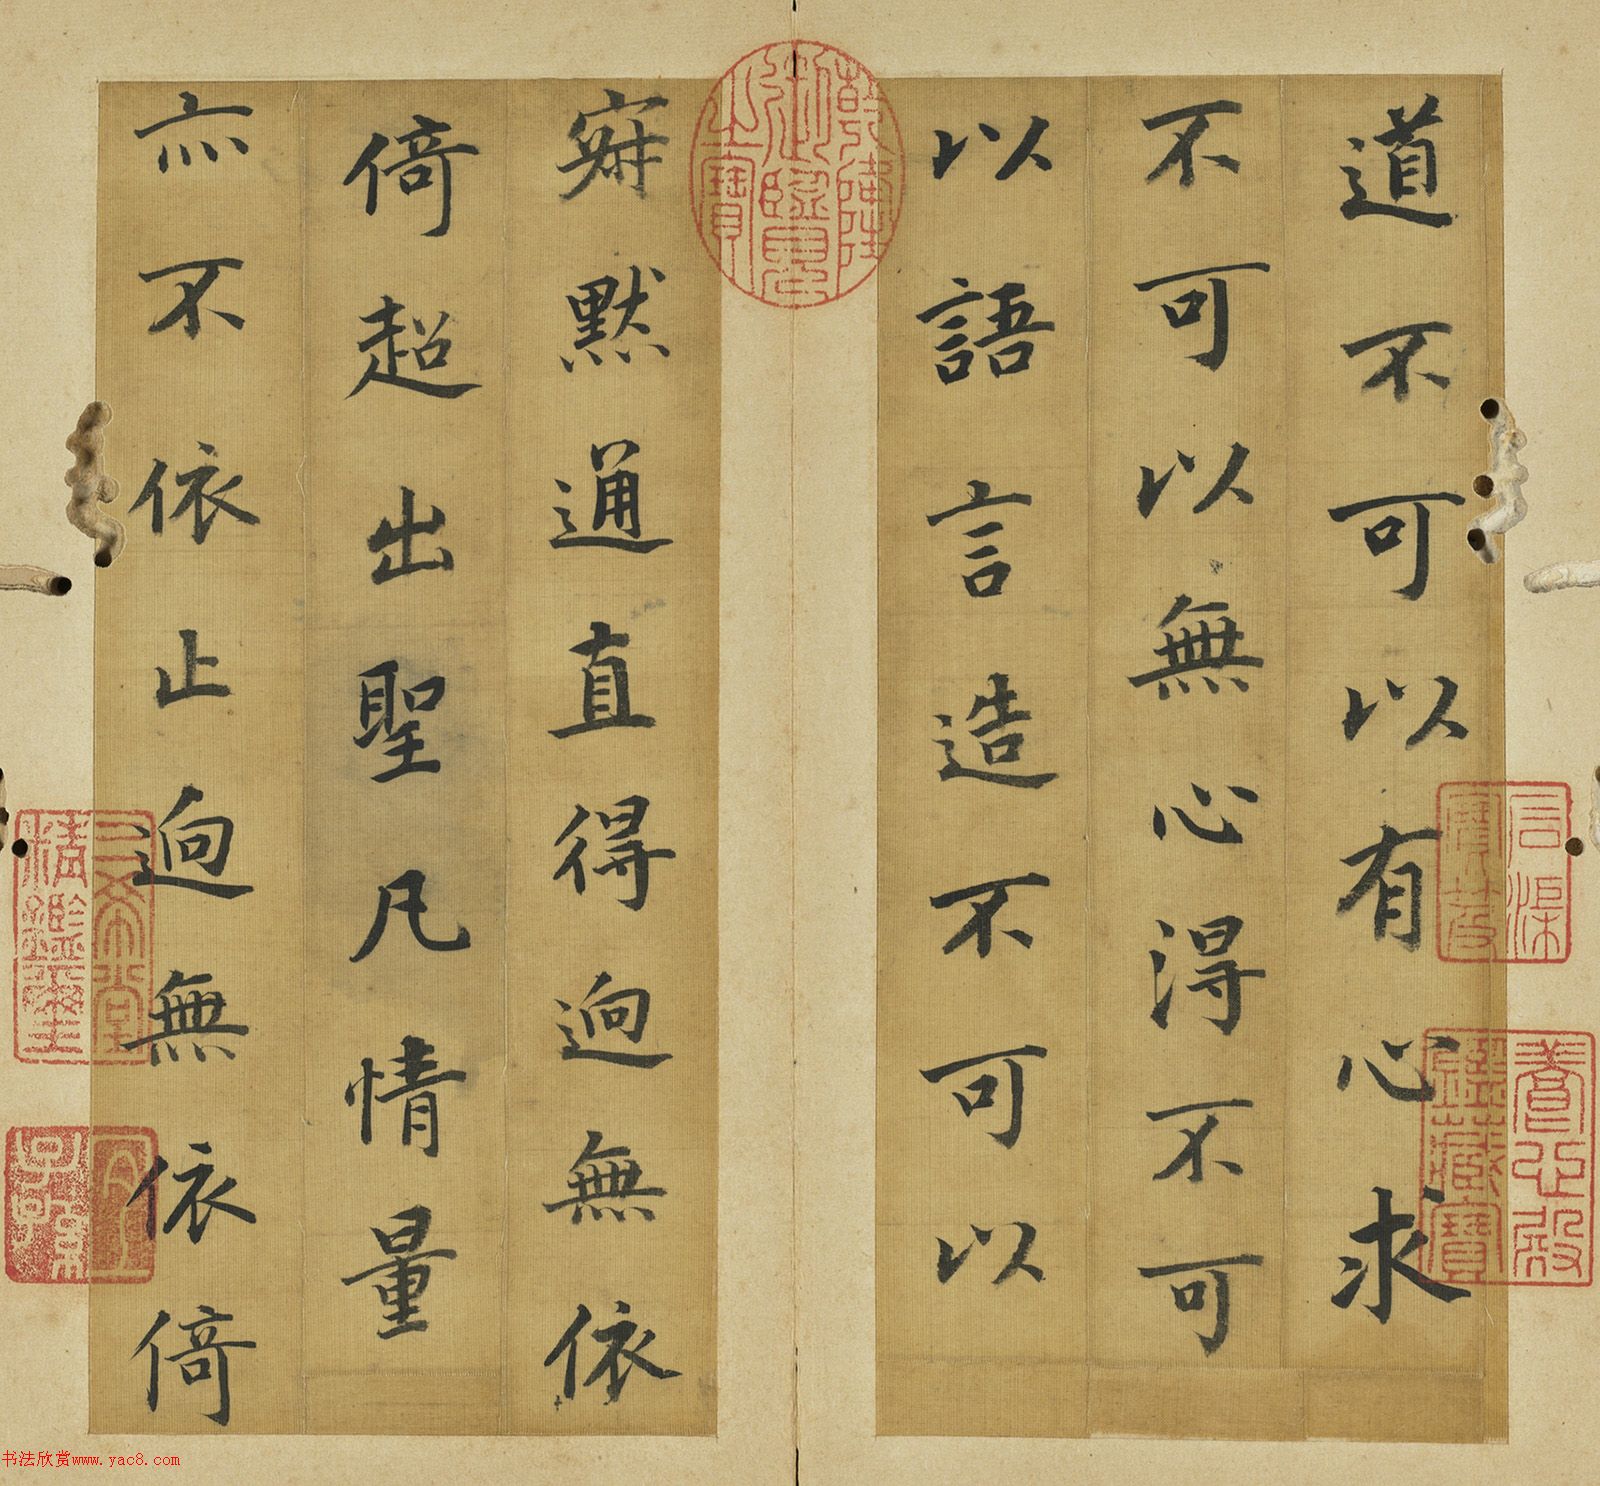 道不可以有心求
不可以無心得不可
以語言造不可以
寂默通直得逈無依
倚超出聖凡情量
亦不依止逈無依倚
儆俟陛
御臨㝢
之寶
石渠
寶笈
養心殿
鑑藏寶
三希堂
精鑑璽
宜子孫
书法欣赏www.yac8.com